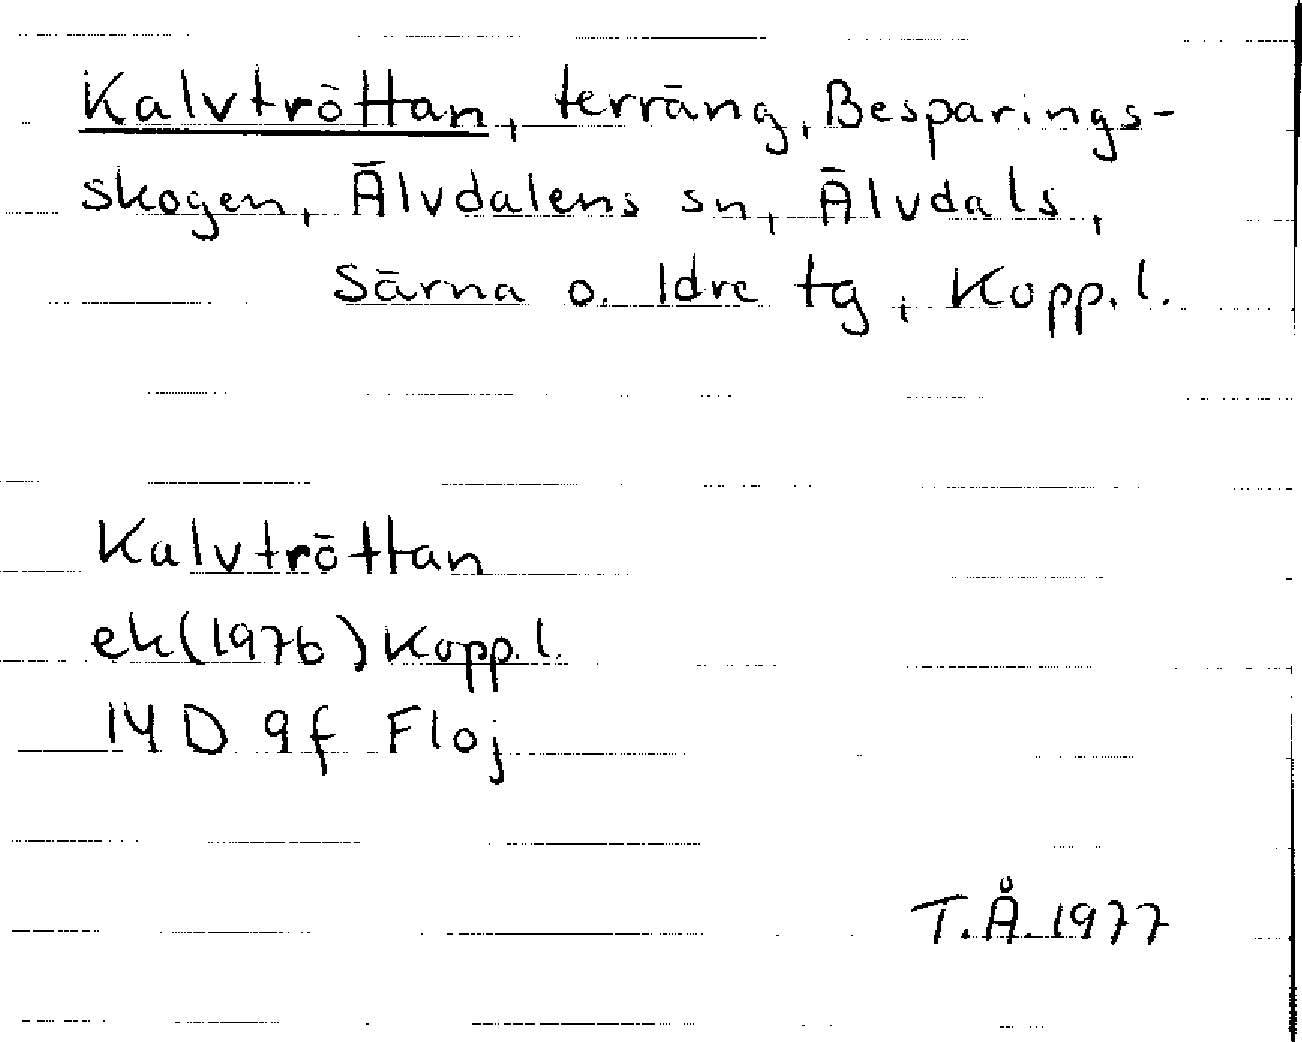 Kalvtröttan, terräng, Besparings-
skogen, Älvdalens sn, Älvdals,
Särna o. Idre tg, Kopp. l.
Kalvtröttan
ek (1976) Kopp. l.
14 D 9f Floj
T.Å. 1977